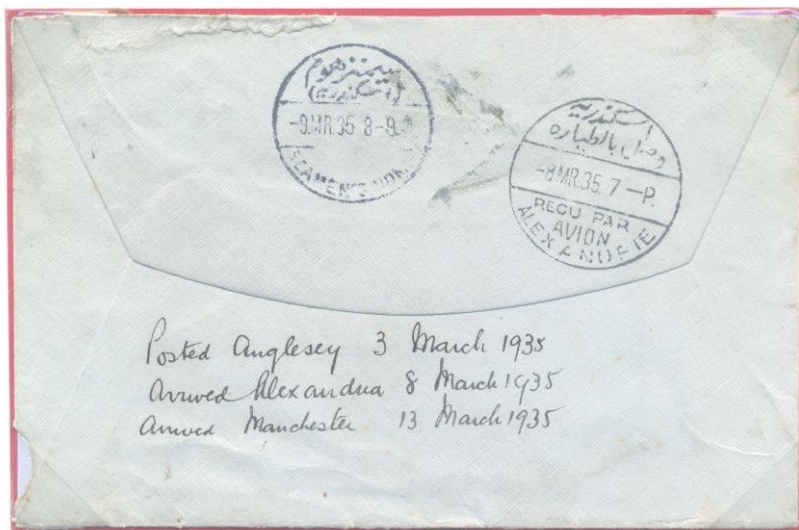 سيمنز هوم
(اسكندرية)
-9.MR.35 8-9.
SEAMEN'S HOME
اسكندرية
وصل بالطياره
-8MR.35.7-P.
RECU PAR
AVION
ALEXANDRIE
Posted Anglesey 3 March 1935
Arrived Alexandria 8 March 1935
Arrived Manchester 13 March 1935